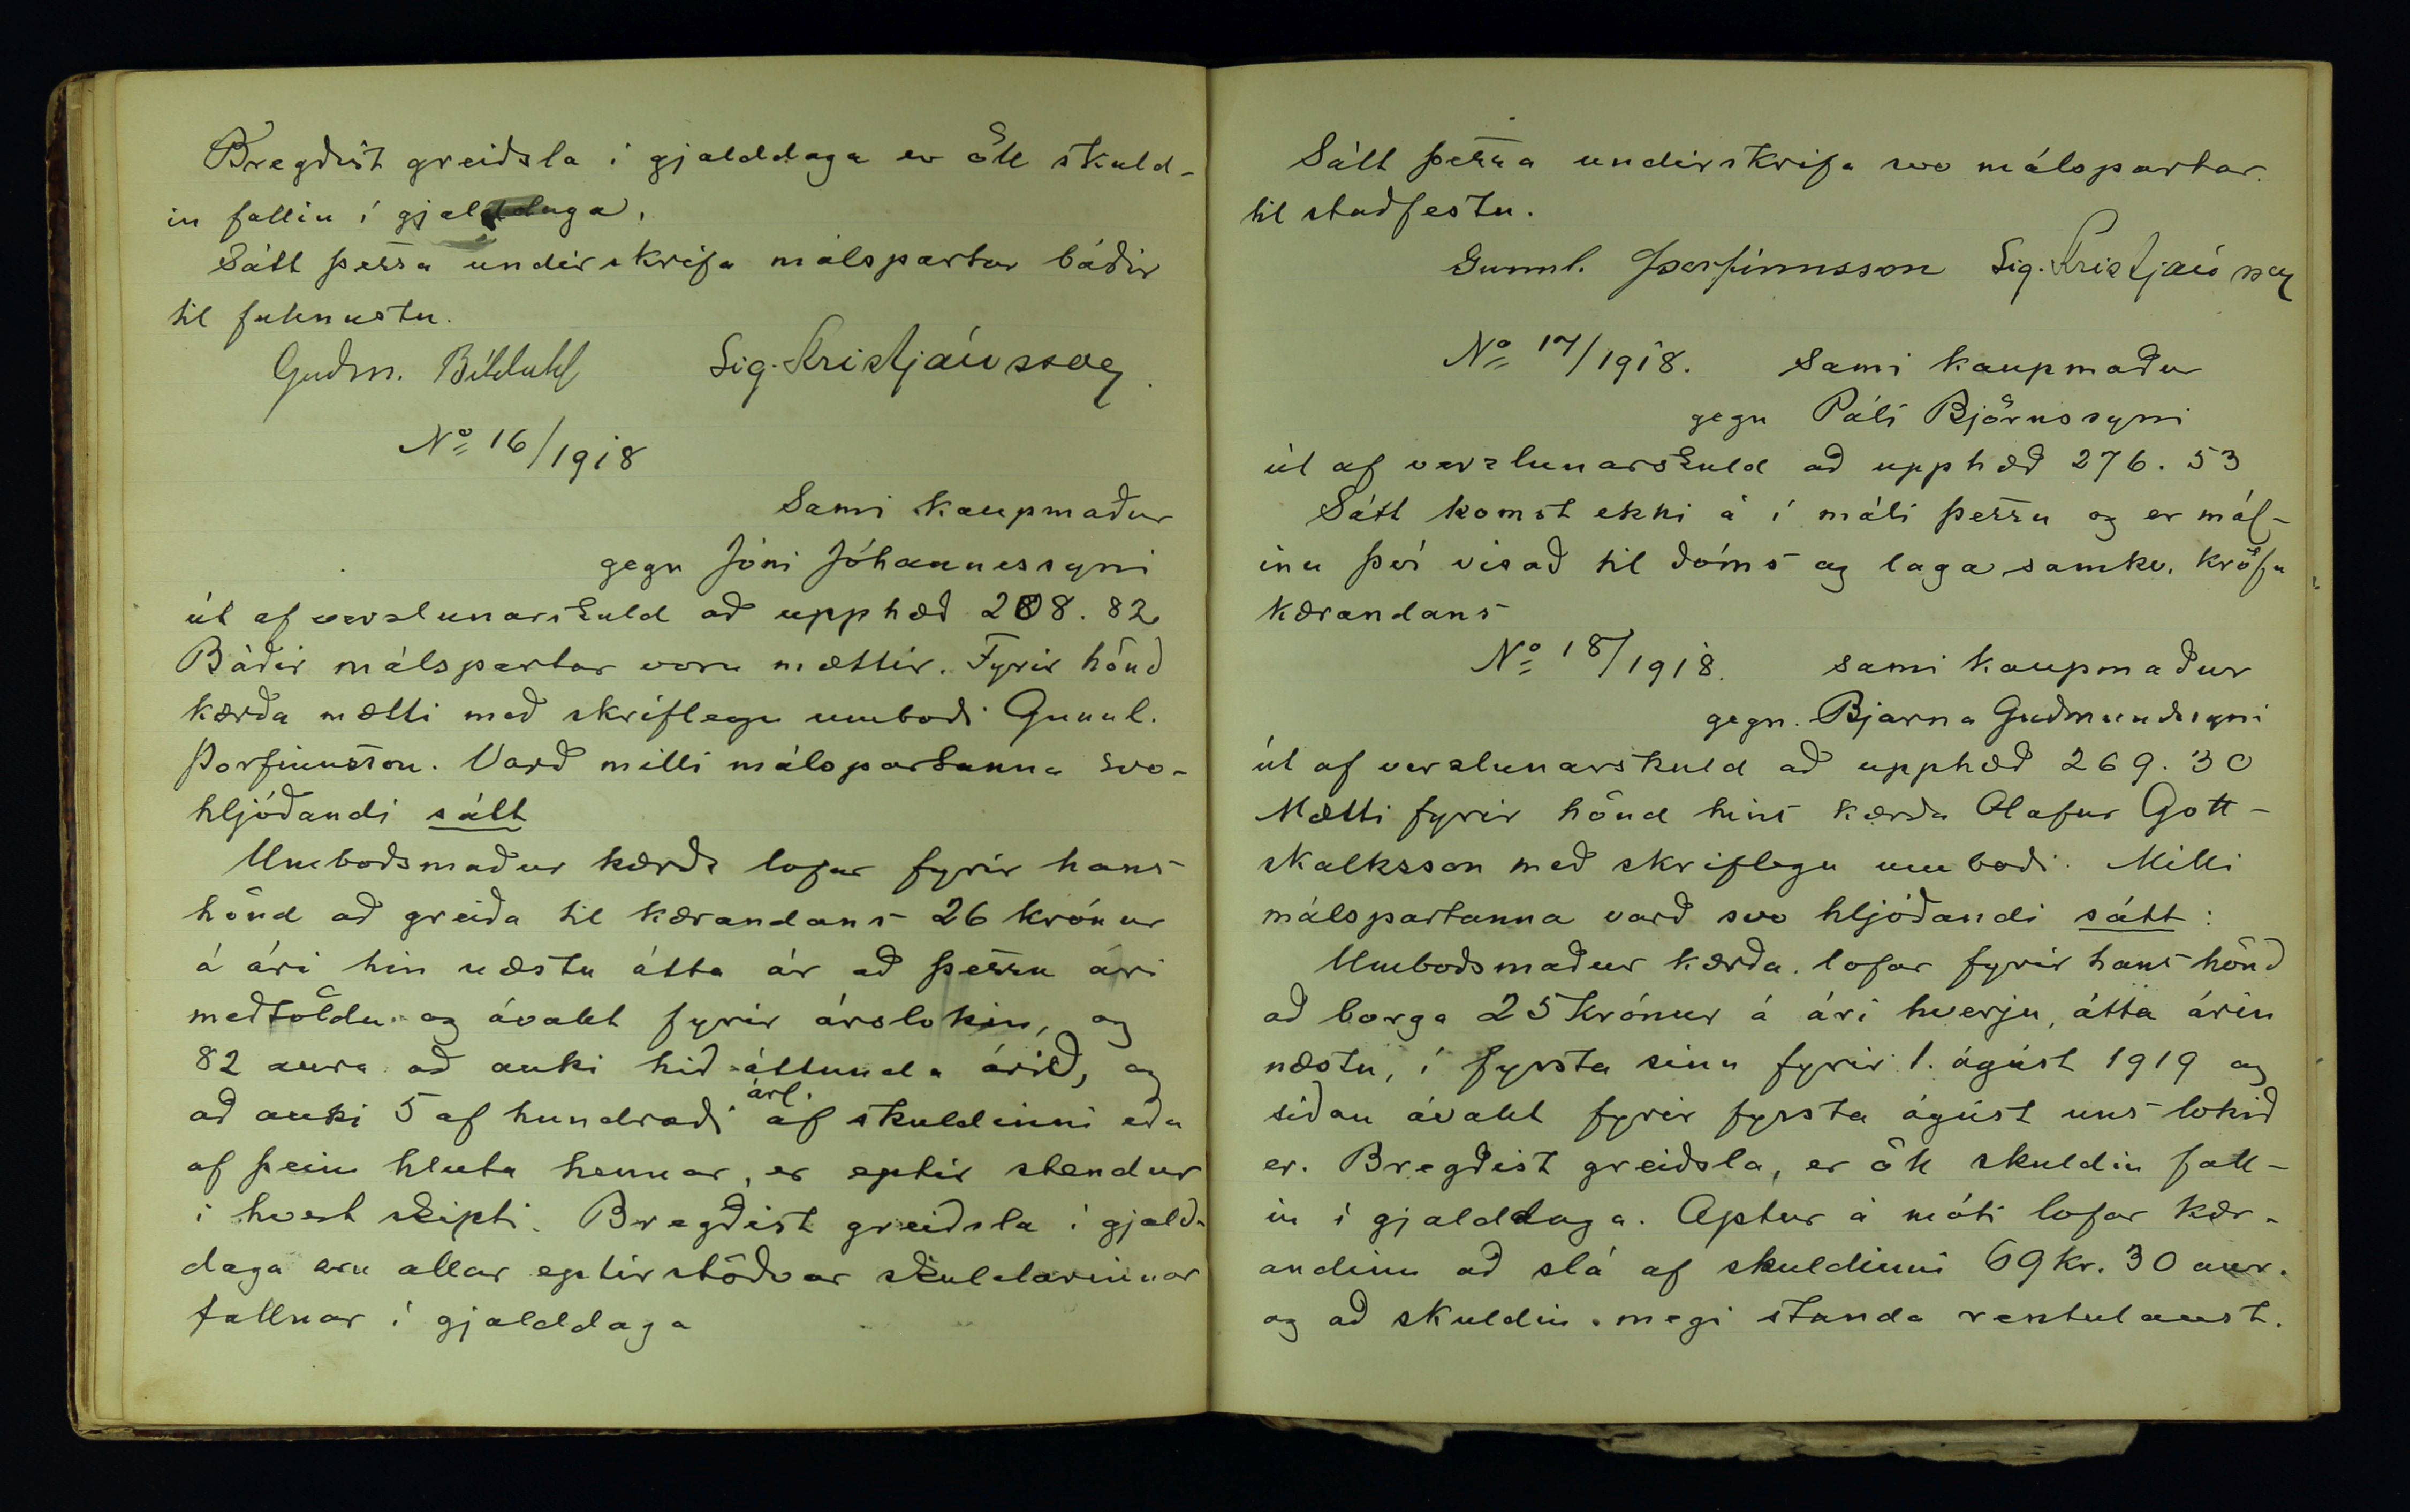 Bregðist greiðsla í gjalddaga er öll skuld-
in fallin í gjalddaga.
Sátt þessa undirskrifa málspartar báðir
til fullnustu.
Guðm. Sig. Kristjánsson
No 16/1918
Sami kaupmaður
gegn Jóni Jóhannessyni
út af verslunarskuld að upphæð 208.82
Báðir málspartar voru mættir. Fyrir hönd
kærða mætti með skriflegu umboði Gunnl.
Þorfinnsson. Varð milli málspartanna svo-
hljóðandi sátt
Umboðsmaður kærða lofar fyrir hans
hönd að greiða til kærandans 26 krónur
á ári hin næstu átta ár að þessu ári
meðtöldu og ávallt fyrir árslokin, og
82 aura að auki hið áttunda árið, og
að auki 5 af hundraði árl. af skuldinni eða
af þeim hluta hennar, er eptir stendur
í hvert skipti. Bregðist greiðsla í gjald-
daga eru allar eptirstöðvar skuldarinnar
fallnar í gjalddaga
Sátt þessa undirskrifa svo málspartar
til staðfestu.
Gunnl. Þorfinnsson Sig. Kristjánsson
No 17/1918. Sami kaupmaður
gegn Páli Björnssyni
út af verzlunarskuld að upphæð 276.53
Sátt komst ekki á í máli þessu og er mál-
inu því vísað til dóms og laga samkv. kröfu
kærandans
No 18/1918. sami kaupmaður
gegn Bjarna Guðmundssyni
út af verzlunarskuld að upphæð 269.30
Mætti fyrir hönd hins kærða Olafur Gott-
skalksson með skriflegu umboði. Milli
málspartanna varð svo hljóðandi sátt:
Umboðsmaður kærða lofar fyrir hans hönd
að borga 25 krónur á ári hverju, átta árin
næstu, í fyrsta sinn fyrir 1. ágúst 1919 og
síðan ávallt fyrir fyrsta ágúst uns lokið
er. Bregðist greiðsla, er öll skuldin fall-
in í gjalddaga. Aptur á móti lofar kær-
andinn að slá af skuldinni 69 kr. 30 aur.
og að skuldin megi standa rentulaust.